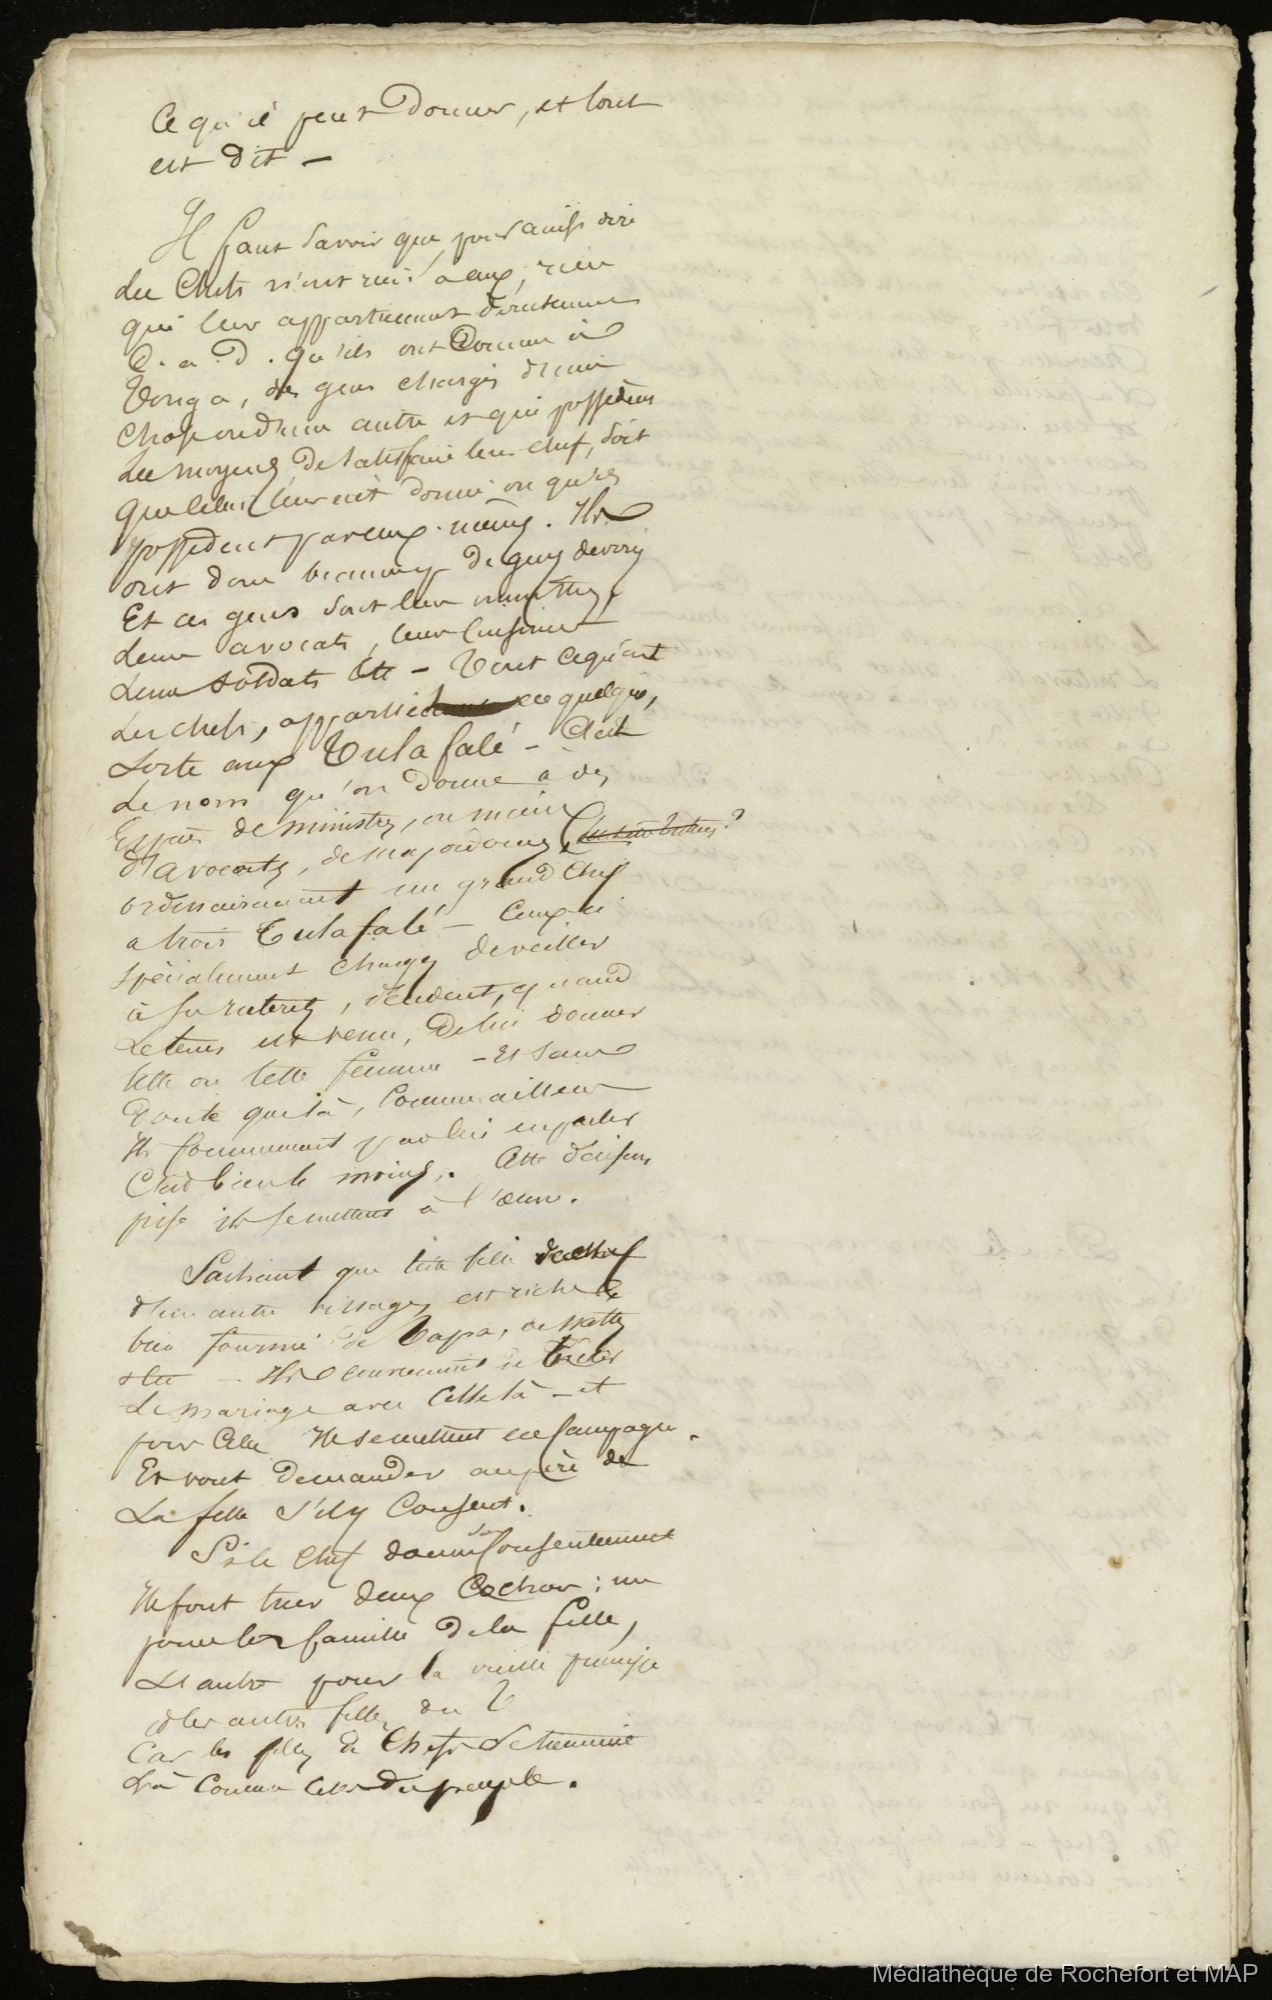 Ce qu'il peut Donner, et tout
est dit —
Il faut savoir que pour ainsi dire
Les Chefs n'ont rien à eux, rien
qui leur appartiennent directement
C. a. D. qu'ils ont Comme à
Tonga, des gens chargés d'une
chose ou d'une autre et qui possèdent
Les moyens De satisfaire leur chef, soit
que celui leur ait donné ou qu'ils
possèdent par eux-mêmes. Ils
ont donc beaucoup De gens
Et ces gens sont leur ministres,
Leur avocats, leur Cuisinier
Leur soldats Ett — Tout ce qu'ont
Les chefs, appartient en quelque,
sorte aux Tulafalé — C'est
Le nom qu'on Donne à des
Espèces de ministres, ou mieux
d'avocats, de majordomes
ordinairement un grand Chef
a trois Tulafalé — Ceux-ci
spécialement chargés de veiller
à ses interets, décident, quand
Le tems est venu, De lui donner
telle ou telle femme — Et sans
Doute que là, Comme ailleurs
Ils commencent par lui en parler
C'est bien le moins. Cette décision
prise ils se mettent à l'œuvre.
Sachant que telle fille de chef
d'un autre village, est riche
bien fournie de Tapa, de nattes
ett — Ils conviennent de tenter
Le mariage avec Celle là — et
pour Cela Ils se mettent en Campagne.
Et vont Demander au père de
La fille s'il y Consent.
Si le Chef donne son Consentement
Ils font tuer deux Cochons; un
pour la famille De la fille,
L'autre pour la vieille
et les autres filles du V
Car les filles de Chefs
là Comme Celles Du peuple.
Médiathèque de Rochefort et MAP